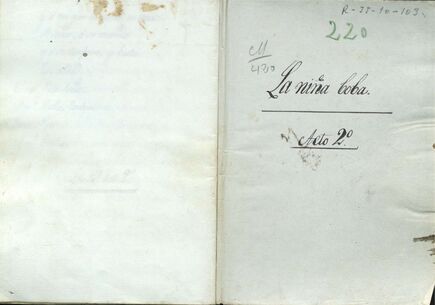 R-35-10-103
220
M
420
La niña boba.
Acto 2º